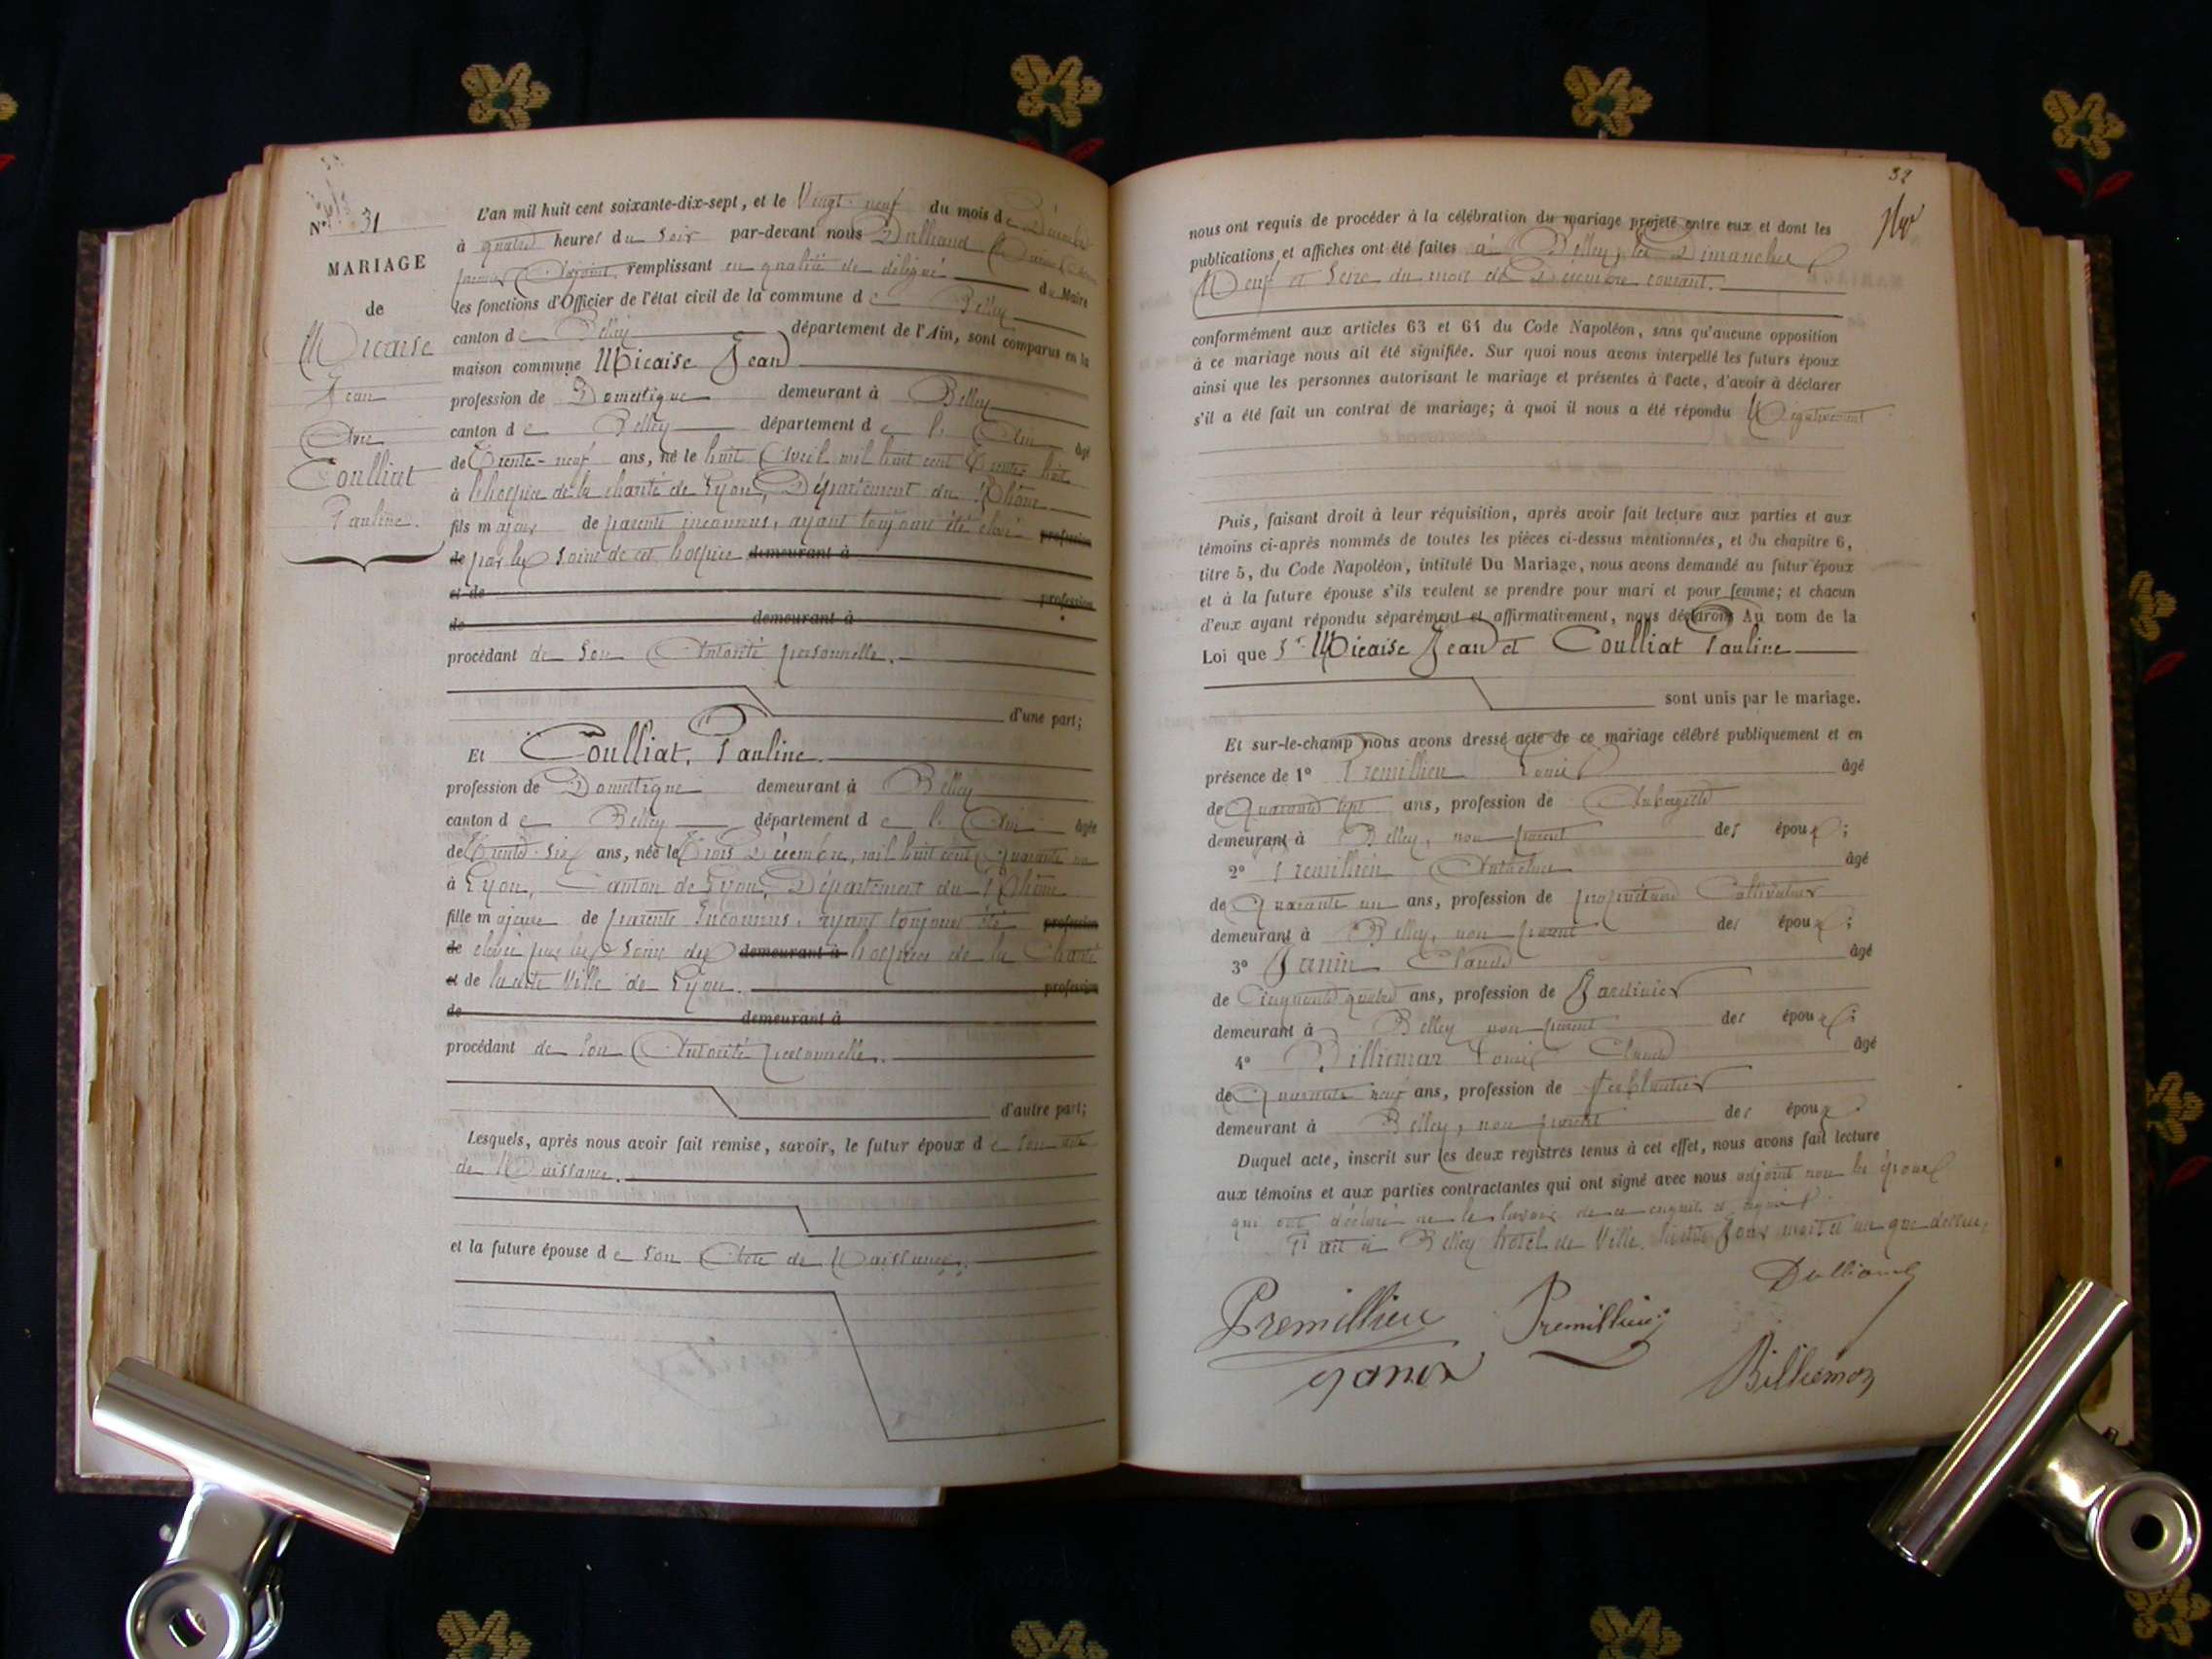 N° 31
MARIAGE
de
Nicaise
Jean
Avec
Coulliat
Pauline.
L'an mil huit cent soixante-dix-sept, et le Vingt-neuf du mois de Décembre
à quatre heures du soir par-devant nous Dulliand
premier Adjoint, remplissant en qualité de délégué du Maire
les fonctions d'Officier de l'état civil de la commune de Belley
canton de Belley département de l'Ain, sont comparus en la
maison commune Nicaise Jean
profession de Domestique demeurant à Belley
canton de Belley département de l'Ain âgé
de Trente-neuf ans, né le huit Avril mil huit cent trente huit
à l'hospice de la charité de Lyon, Département du Rhône
fils majeur de parents inconnus, ayant toujours été élevé profession
de par les soins de cet hospice demeurant à
et de profession
de demeurant à
procédant de son Autorité personnelle.
d'une part;
Et Coulliat, Pauline.
profession de Domestique demeurant à Belley
canton de Belley département de l'Ain âgée
de Trente-six ans, née le Trois Décembre, mil huit cent Quarante un
à Lyon, Canton de Lyon, Département du Rhône
fille majeure de parents Inconnus, ayant toujours été profession
de élevée par les soins des demeurant à hospices de la Charité
et de ladite Ville de Lyon. profession
de demeurant à
procédant de son Autorité personnelle.
d'autre part;
Lesquels, après nous avoir fait remise, savoir, le futur époux de son acte
de Naissance.
et la future épouse de son Acte de Naissance.
32
nous ont requis de procéder à la célébration du mariage projeté entre eux et dont les
publications et affiches ont été faites à Belley, les Dimanches
Neuf et Seize du mois de Décembre courant.
conformément aux articles 63 et 64 du Code Napoléon, sans qu'aucune opposition
à ce mariage nous ait été signifiée. Sur quoi nous avons interpellé les futurs époux
ainsi que les personnes autorisant le mariage et présentes à l'acte, d'avoir à déclarer
s'il a été fait un contrat de mariage; à quoi il nous a été répondu Négativement
Puis, faisant droit à leur réquisition, après avoir fait lecture aux parties et aux
témoins ci-après nommés de toutes les pièces ci-dessus mentionnées, et du chapitre 6,
titre 5, du Code Napoléon, intitulé Du Mariage, nous avons demandé au futur époux
et à la future épouse s'ils veulent se prendre pour mari et pour femme; et chacun
d'eux ayant répondu séparément et affirmativement, nous déclarons Au nom de la
Loi que Sr Nicaise Jean et Coulliat Pauline
sont unis par le mariage.
Et sur-le-champ nous avons dressé acte de ce mariage célébré publiquement et en
présence de 1° Premillieu Louis âgé
de Quarante sept ans, profession de Aubergiste
demeurant à Belley, non parent des époux;
2° Premillieu Anthelme âgé
de Quarante un ans, profession de propriétaire Cultivateur
demeurant à Belley, non parent des époux;
3° Janin Claude âgé
de Cinquante quatre ans, profession de Jardinier
demeurant à Belley non parent des époux;
4° Billiemaz Louis Claude âgé
de Quarante neuf ans, profession de ferblantier
demeurant à Belley, non parent des époux.
Duquel acte, inscrit sur les deux registres tenus à cet effet, nous avons fait lecture
aux témoins et aux parties contractantes qui ont signé avec nous adjoint non les époux
qui ont déclaré ne le savoir de ce enquis et requis.
Fait à Belley hôtel de Ville, lesdits jour mois et an que dessus,
Dulliand
Premillieu Premillieu
Janin Billiemaz